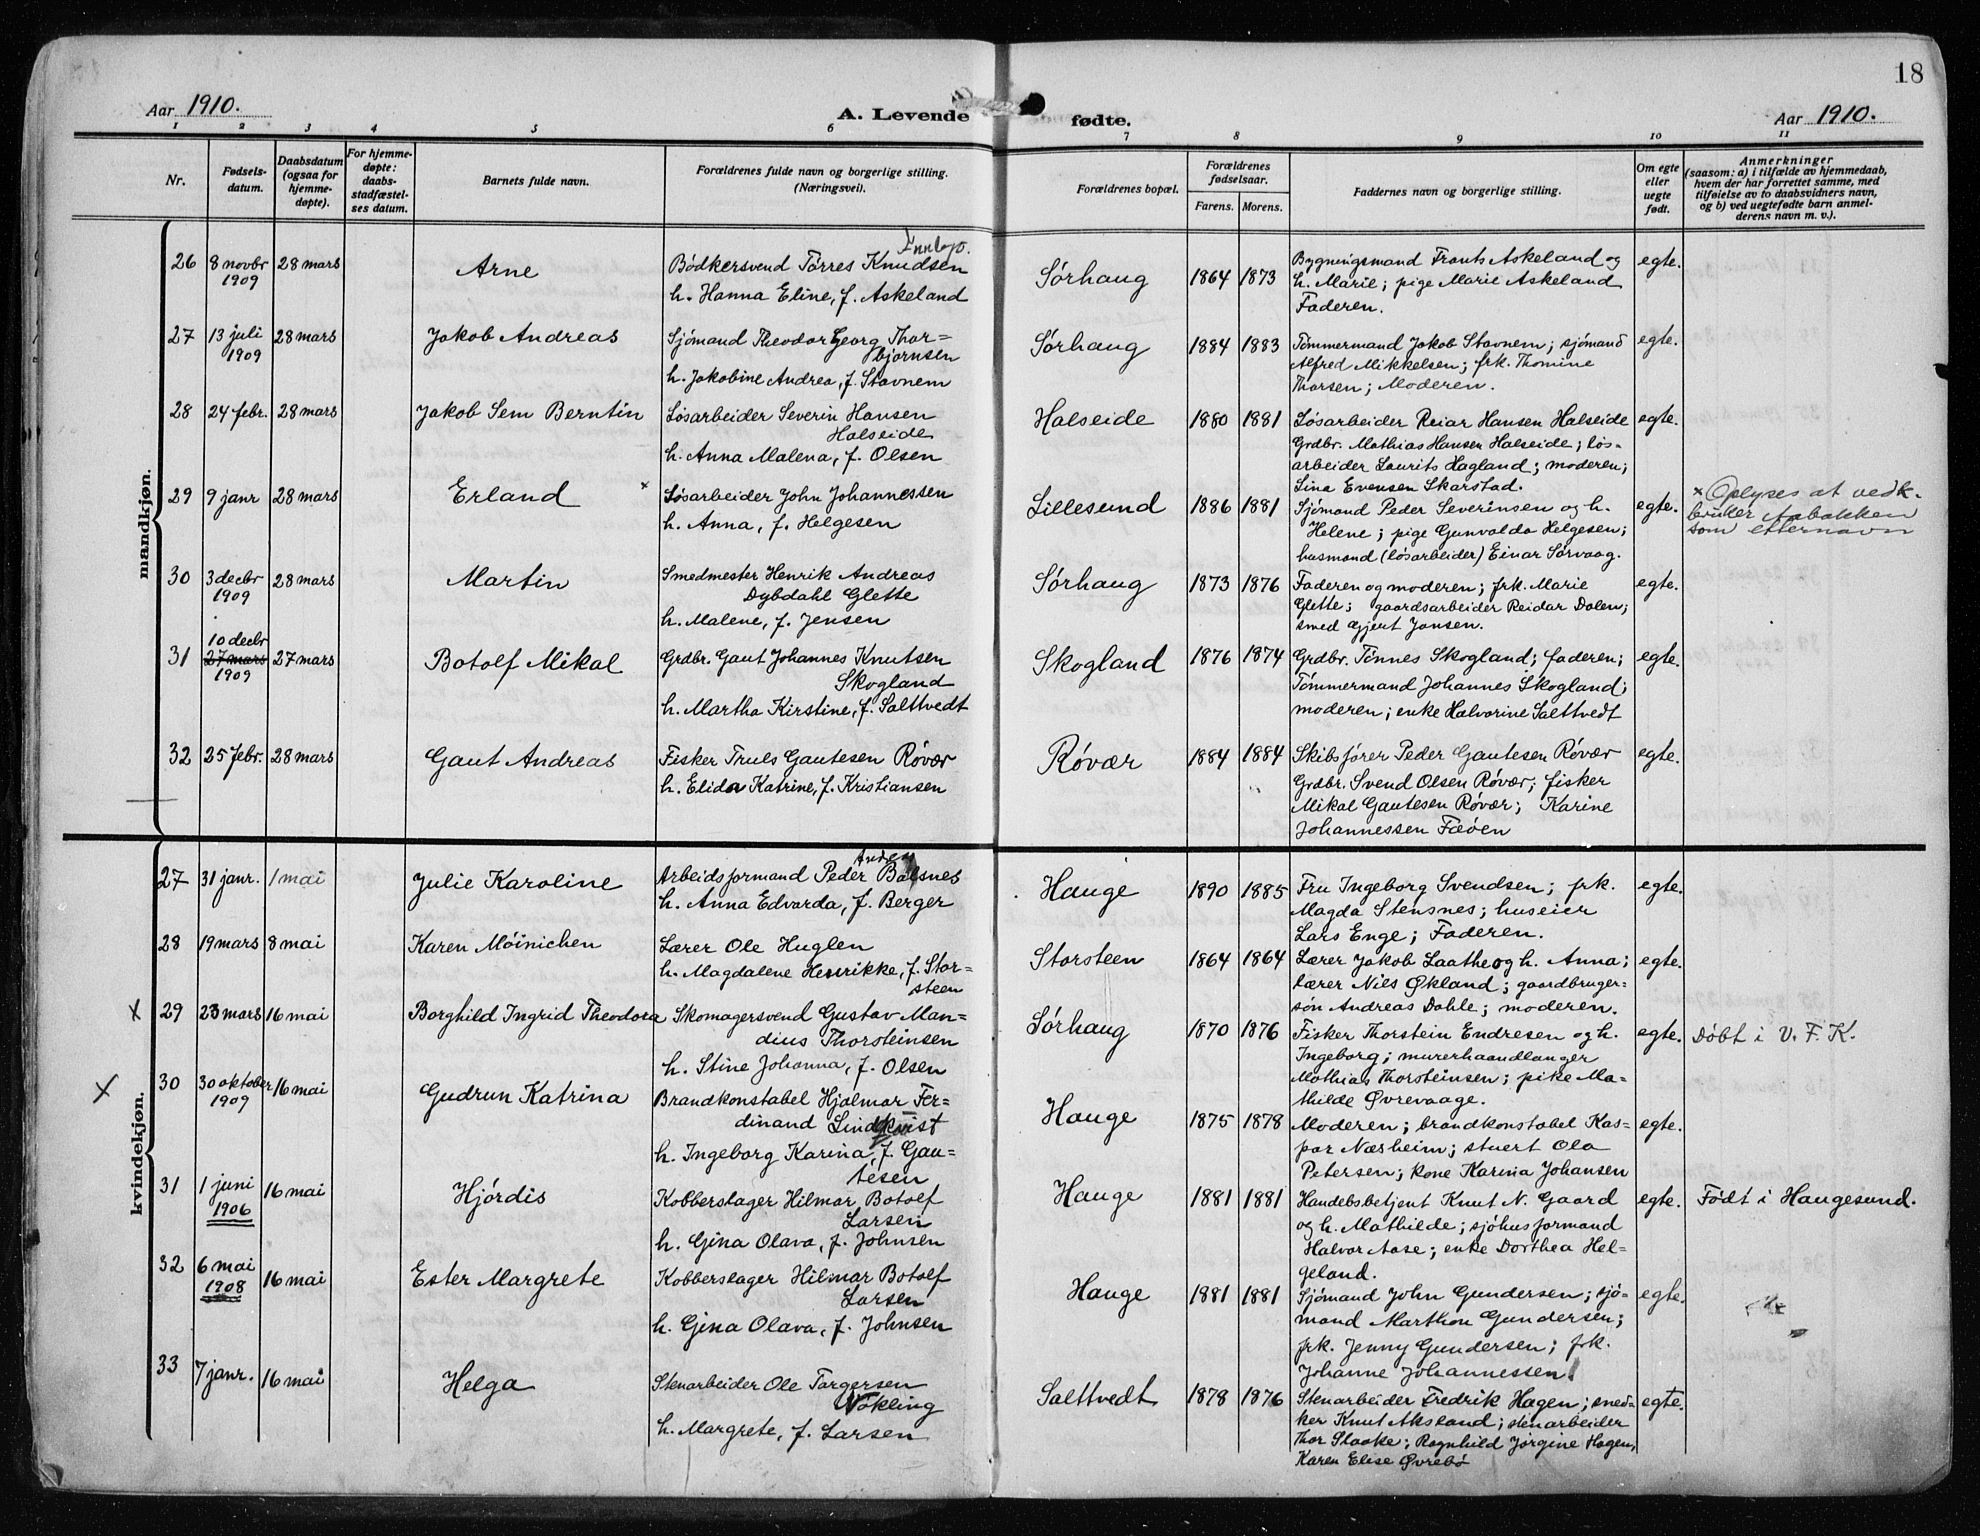 18
Aar 1910.
A. Levende fødte.
Aar 1910.
1 2 3 4 5 6 7 8 9 10 11
Nr.
Fødsels-
datum.
Daabsdatum
(ogsaa for
hjemme-
døpte).
For hjemme-
døpte:
daabs-
stadfæstel-
ses datum.
Barnets fulde navn.
Forældrenes fulde navn og borgerlige stilling.
(Næringsvei).
Forældrenes bopæl.
Forældrenes
fødselsaar.
Farens. Morens.
Faddernes navn og borgerlige stilling.
Om egte
eller
uegte
født.
Anmerkninger
(saasom: a) i tilfælde av hjemmedaab,
hvem der har forrettet samme, med
tilføielse av to daabsvidners navn,
og b) ved uegtefødte barn anmel-
derens navn m. v.).
mandkjøn.
26 8 novbr 28 mars Arne Bødkersvend Tørres Knudsen Sørhaug 1864 1873 Bygningsmand Frants Askeland og egte.
1909 h. Hanna Eline, f. Askeland h. Marie; pige Marie Askeland
Faderen.
27 13 juli 28 mars Jakob Andreas Sjømand Theodor Georg Thor= Sørhaug 1884 1883 Tømmermand Jakob Stavnem; sjømand egte.
1909 bjørnsen Alfred Mikkelsen; frk. Thomine
h. Jakobine Andrea, f. Stavnem Thorsen; Moderen.
28 24 febr. 28 mars Jakob Sem Berntin Løsarbeider Severin Hansen Halseide 1880 1881 Løsarbeider Reiar Hansen Halseide egte.
Halseide Grdbr. Mathias Hansen Halseide; løs-
h. Anna Malena, f. Olsen arbeider Laurits Hagland; moderen;
Lina Evensen Skarstad.
29 9 janr 28 mars Erland x Løsarbeider John Johannessen Lillesund 1886 1881 Sjømand Peder Severinsen og h. egte. x Oplyses at vedk.
h. Anna, f. Helgesen Helene; pige Gunvalda Helgesen; bruker Aabakken
husmand (løsarbeider) Einar Sørvaag. som etternavn
30 3 decbr 28 mars Martin Smedmester Henrik Andreas Sørhaug 1873 1876 Faderen og moderen; frk. Marie egte.
1909 Dybdahl Glette Glette; gaardsarbeider Reidar Dalen;
h. Malene, f. Jensen smed Jansen.
10 decbr
31 27 mars 27 mars Botolf Mikal Grdbr. Gaut Johannes Knutsen Skogland 1876 1874 Grdbr. Tønnes Skogland; faderen; egte.
1909 Skogland Tømmermand Johannes Skogland;
h. Martha Kirstine, f. Salttvedt moderen; enke Halvorine Salttvedt
32 25 febr. 28 mars Gaut Andreas Fisker Truls Gautesen Røvær Røvær 1884 1884 Skibsfører Peder Gautesen Røvær egte.
h. Elida Katrine, f. Kristiansen Grdbr. Svend Olsen Røvær; fisker
Mikal Gautesen Røvær; Karine
Johannessen Fæøen
kvindekjøn.
27 31 janr. 1 mai Julie Karoline Arbeidsformand Peder Balsnes Hauge 1890 1885 Fru Ingeborg Svendsen; frk. egte.
h. Anna Edvarda, f. Berger Magda Stensnes; huseier
Lars Enge; Faderen.
28 19 mars 8 mai Karen Møinichen Lærer Ole Huglen Storsteen 1864 1864 Lærer Jakob Laathe og h. Anna; egte.
h. Magdalene Henrikke, f. Stor= lærer Nils Økland; gaardbruger=
steen søn Andreas Dahle; moderen.
x 29 23 mars 16 mai Borghild Ingrid Theodora Skomagersvend Gustav Man= Sørhaug 1870 1876 Fisker Thorstein Endresen og h. egte. Døbt i V. F. K.
dius Thorsteinsen Ingeborg; murerhaandlanger
h. Stine Johanna, f. Olsen Mathias Thorsteinsen; pike Ma=
thilde Øvrevaage.
x 30 30 oktober 16 mai Gudrun Katrina Brandkonstabel Hjalmar Fer= Hauge 1875 1878 Moderen; brandkonstabel Kas= egte.
1909 dinand Lindkvist par Næsheim; stuert Ola
h. Ingeborg Karina, f. Gau= Petersen; kone Karina Johansen
tesen
31 1 juni 16 mai Hjørdis Kobberslager Hilmar Botolf Hauge 1881 1881 Handelsbetjent Knut N. Gaard egte. Født i Haugesund.
1906 Larsen og h. Mathilde; sjøhusformand
h. Gina Olava, f. Johnsen Halvor Aase; enke Dorthea Hel=
geland.
32 6 mai 16 mai Ester Margrete Kobberslager Hilmar Botolf Hauge 1881 1881 Sjømand John Gundersen; sjø= egte.
1908 Larsen mand Marthon Gundersen;
h. Gina Olava, f. Johnsen frk. Jenny Gundersen; frk.
Johanne Johannessen
33 7 janr. 16 mai Helga Stenarbeider Ole Torgersen Salttvedt 1878 1876 Stenarbeider Fredrik Hagen; sned= egte.
Nøkling ker Knut Aksland; stenarbeider
h. Margrete, f. Larsen Thor Slaake; Ragnhild Jørgine Hagen,
Karen Elise Øvrebø